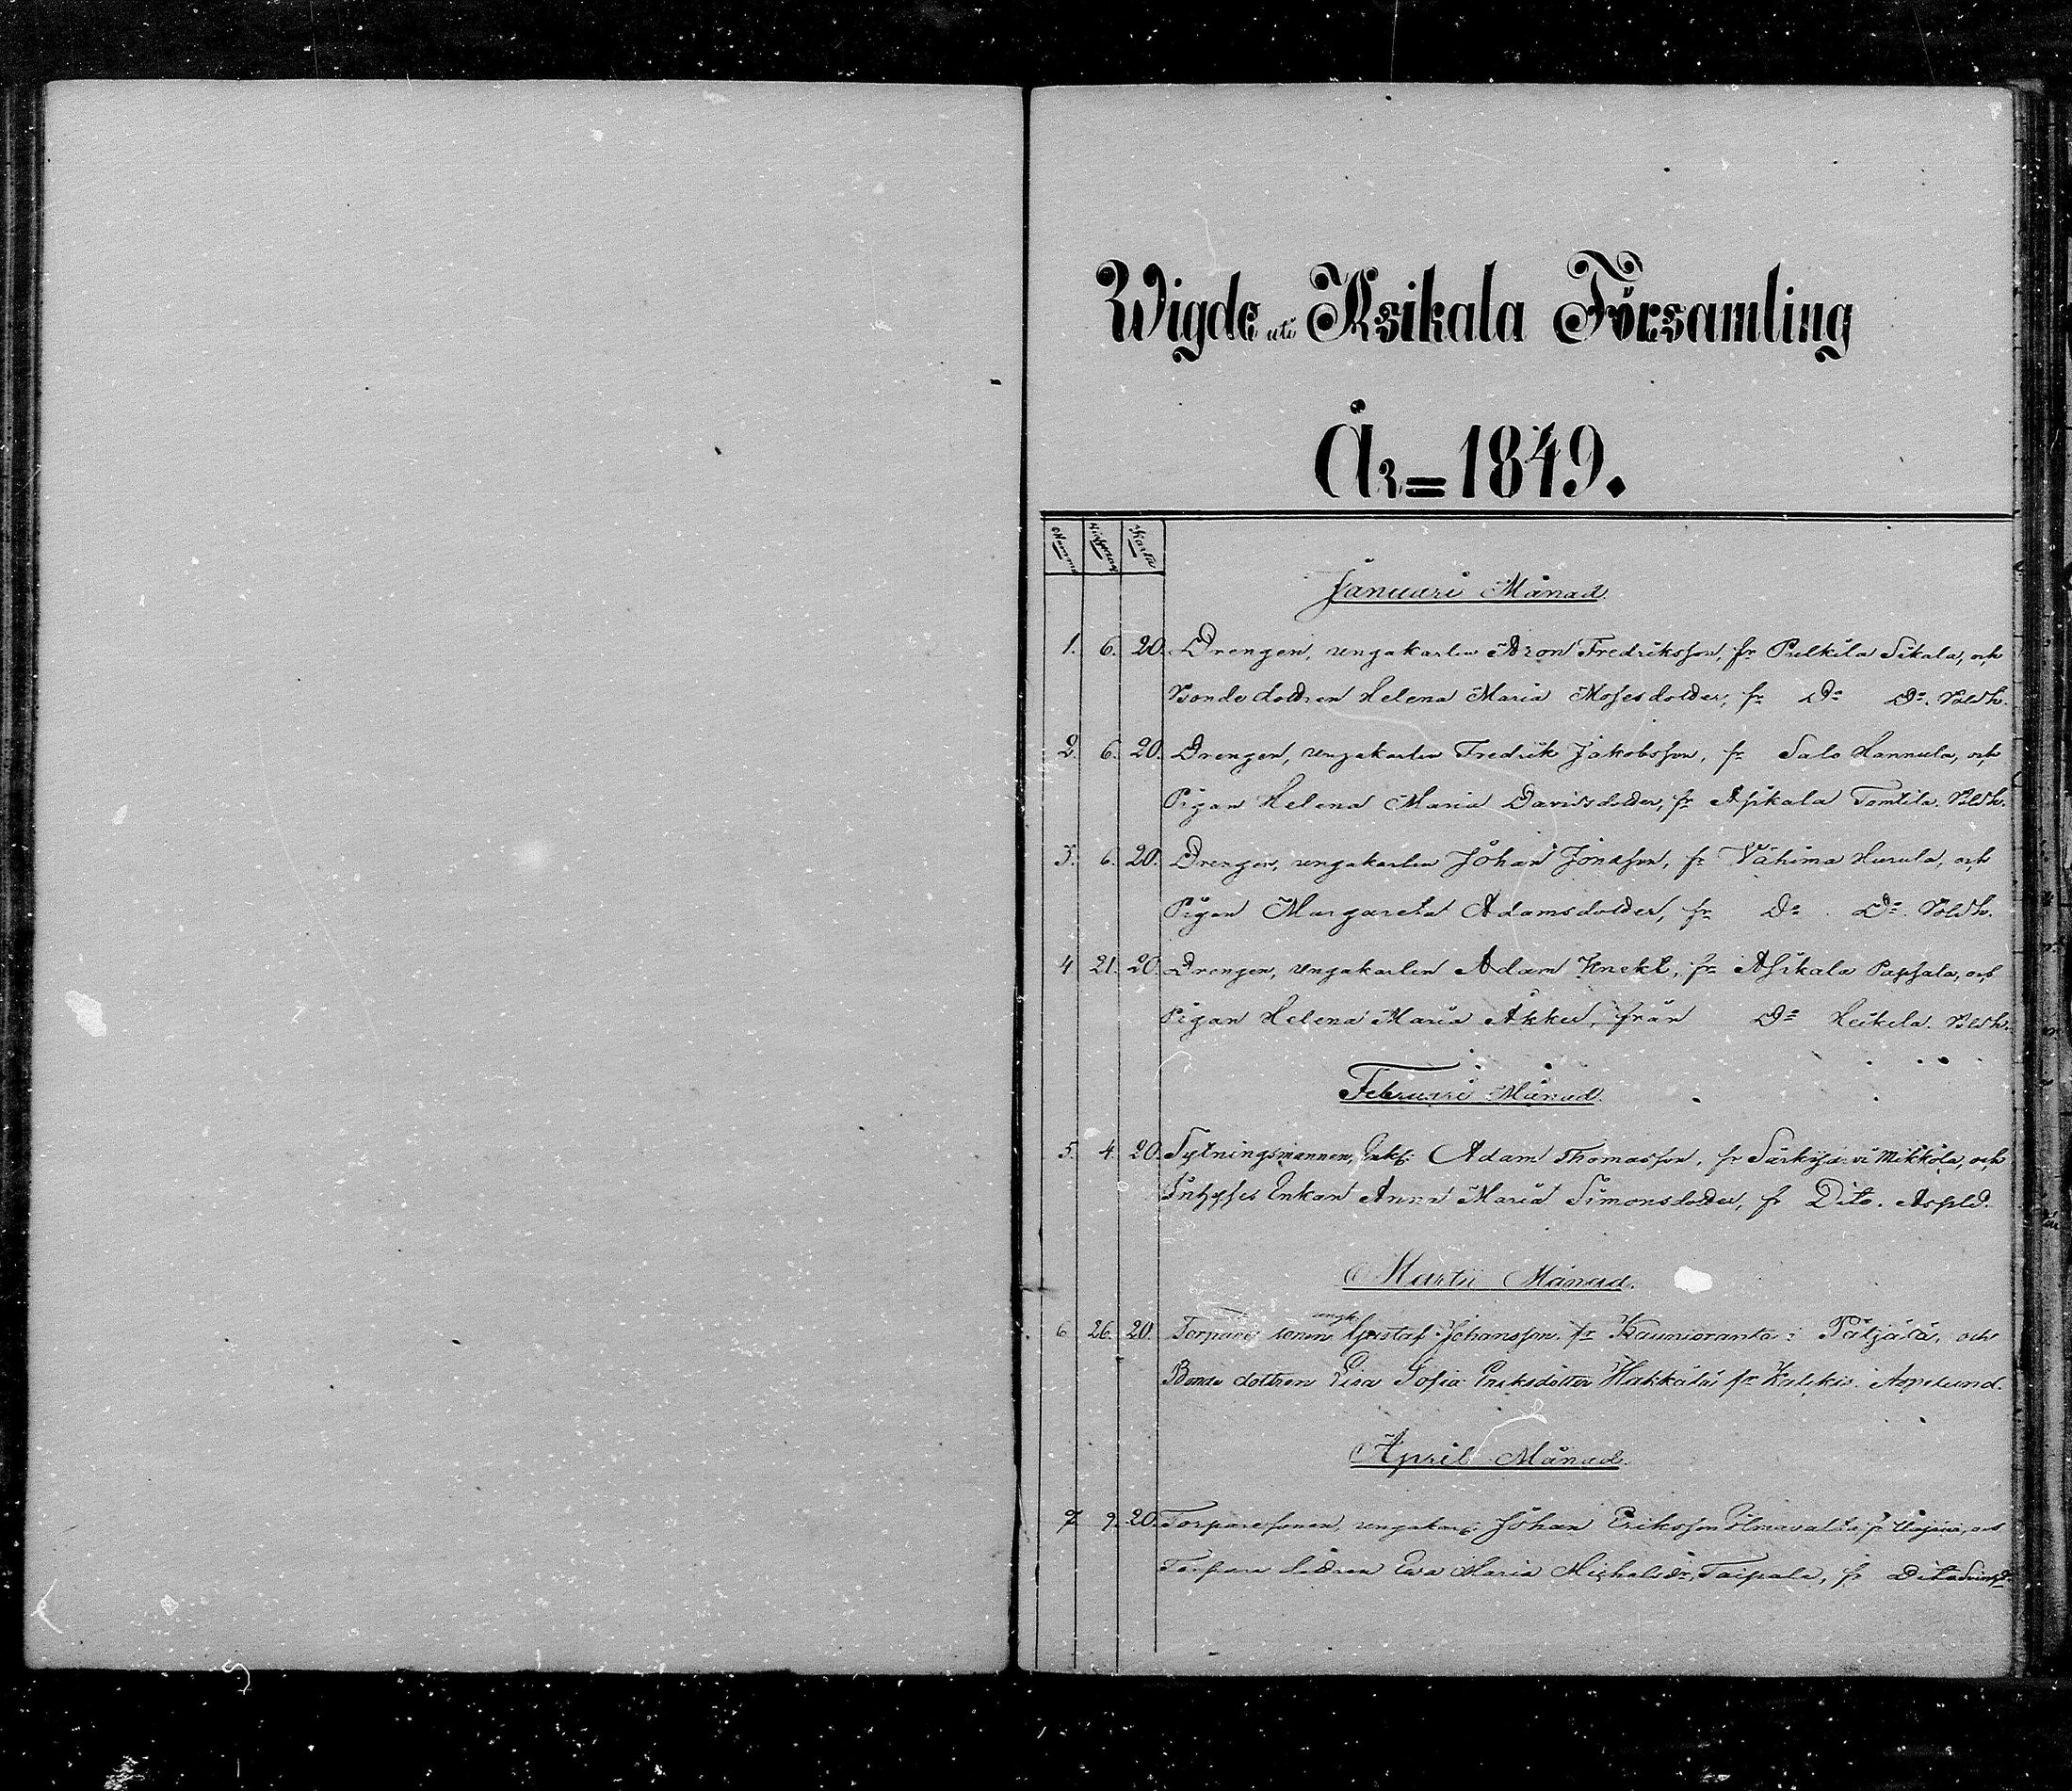 Wigde uti Asikala Församling
År = 1849.
Januari Månad.
1. 6. 20. Drengen, ungakarlen Aron Fredriksson, fr Pulkila Sikala, och
Bonde dottren Helena Maria Mosesdotter, fr Do Do.
2. 6. 20. Drengen, ungakarlen Fredrik Jakobsson, fr Salo Hannula, och
Pigan Helena Maria Davidsdotter, fr Asikala Tomtila.
3. 6. 20. Drengen, ungakarlen Johan Jonasson, fr Vähima Hurula, och
Pigan Margareta Adamsdotter, fr Do. Do.
4 21. 20. Drengen, ungakarlen Adam Knekt, fr Asikala Papsala, och
Pigan Helena Maria Akku, från Do Heikila.
Februari Månad.
5. 4. 20. Sytningsmannen, Enkl: Adam Thomasson, fr Särkijärvi Mikkola, och
Inhyses Enkan Anna Maria Simonsdotter, fr Dito. Aspld.
Martii Månad.
6 26. 20. Torpare sonen ungk. Gustaf Johansson, fr Kaunioranta i Pätjälä, och
Bonde dottren Lisa Sofia Eriksdotter Hakkala fr Kalkis. Aspelund.
April Månad.
7 9. 20. Torparesonen, ungakarl: Johan Eriksson Ilmavalta fr och
Torpare dottren Eva Maria Michelsdr, Taipale, fr Dito